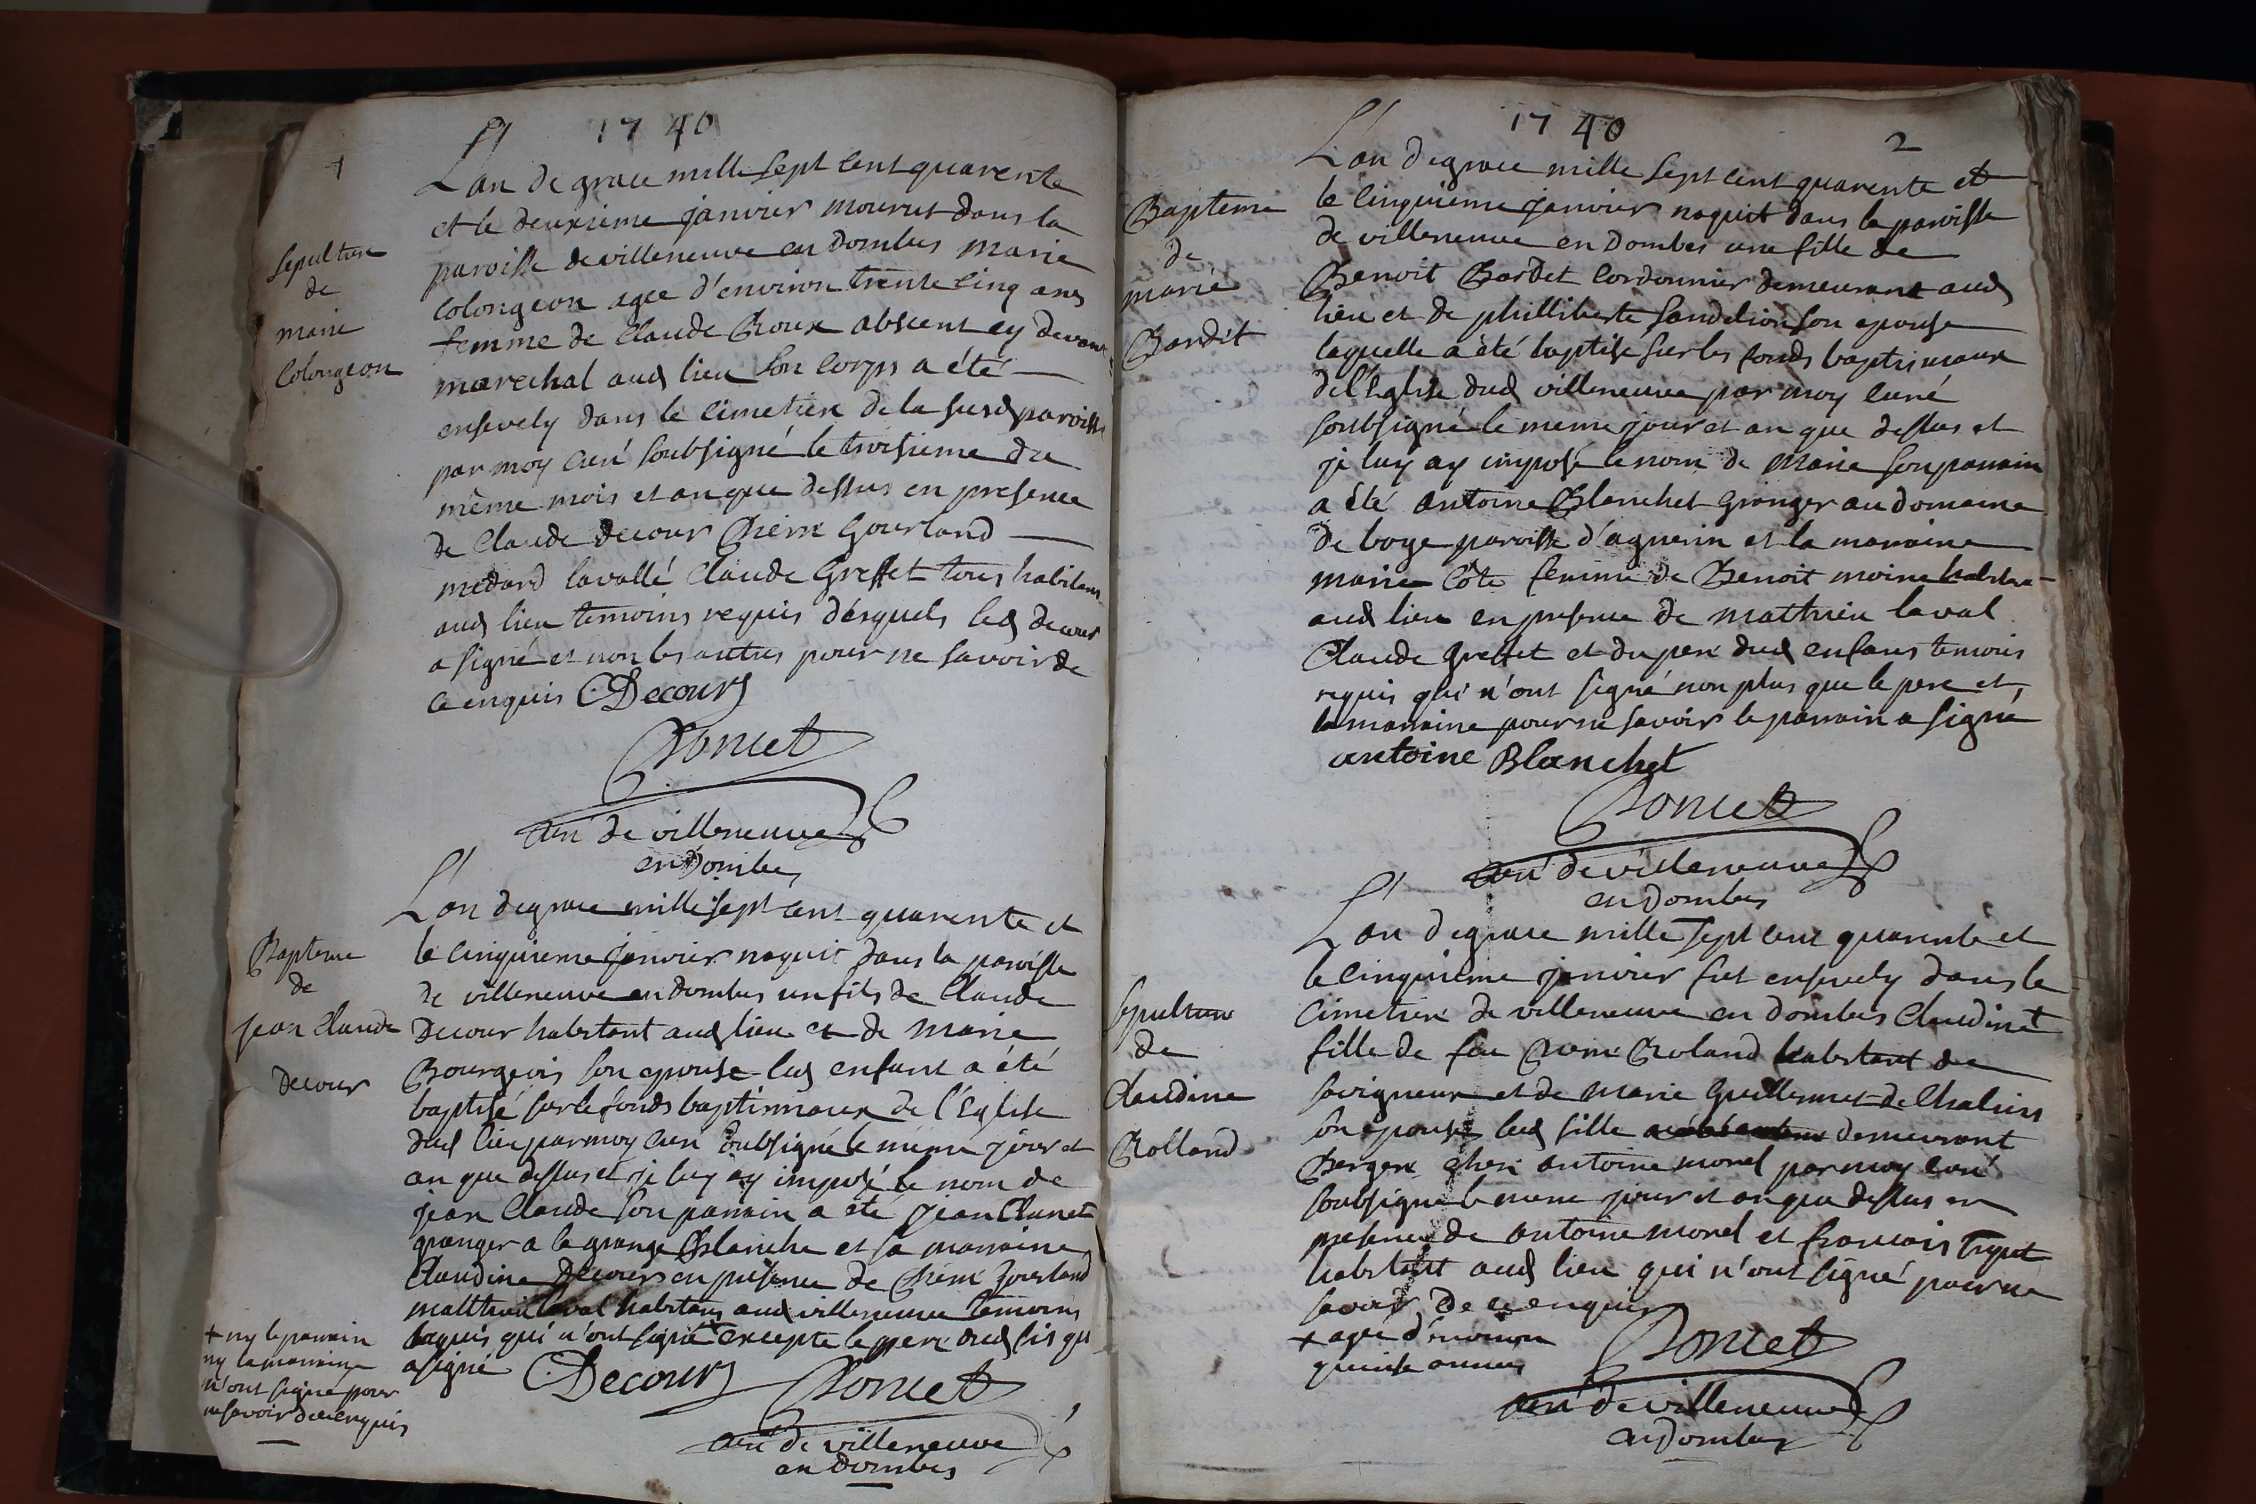 1740
1
L'an de grace mille sept cent quarente
et le deuxieme janvier mourut dans la
paroisse de villeneuve en Dombes marie
Colongeon agee d'environ trente cinq ans
femme de Claude Roux absent cy devant
marechal aud lieu son corps a été
ensevely dans le cimetiere de la susd paroisse
par moy curé soubsigné le troisieme du
même mois et an que dessus en presence
de Claude Decour Pierre Gourland
medard lavallé Claude Greffet tous habitans
aud lieu temoins requis desquels led Decour
a signé et non les autres pour ne savoir de
ce enquis CDecour
Poncet
curé de villeneuve
en Dombes
Sepulture
de
marie
Colongeon
L'an de grace mille sept cent quarente et
le cinquieme janvier naquit dans la paroisse
de villeneuve en Dombes un fils de Claude
Decour habitant aud lieu et de Marie
Bourgeois son epouse led enfant a été
baptisé sur le fonds baptismaux de l'Eglise
dud lieu par moy curé soubsigné le même jour et
an que dessus et je luy ay imposé le nom de
jean Claude son parrain a été jean
granger a la grange Blanche et sa marraine
Claudine Decour en presence de Pierre Gourland
matthieu laval habitans aud villeneuve temoins
requis qui n'ont signé excepte le pere dud fis qui
a signé CDecour
Poncet
curé de villeneuve
en Dombes
Bapteme
de
jean Claude
Decour
+ ny le parrain
ny la marraine
n'ont signé pour
ne savoir de ce enquis
1740
2
L'an de grace mille sept cent quarente et
le cinquieme janvier naquit dans la paroisse
de villeneuve en Dombes une fille de
Benoit Bardet Cordonnier demeurant aud
lieu et de philliberte Sandelion son epouse
laquelle a été baptisé sur les fonds baptismaux
de l'Eglise dud villeneuve par moy curé
soubsigné le meme jour et an que dessus et
je luy ay imposé le nom de Marie son parrain
a été antoine Blanchet Granger au domaine
de boye paroisse d'agnerin et la marraine
marie Côte femme de Benoit moine
aud lieu en presence de matthieu laval
Claude Greffet et du pere dud enfans temoins
requis qui n'ont signé non plus que le pere et
la marraine pour ne savoir le parrain a signé
antoine Blanchet
Poncet
curé de villeneuve
en Dombes
Bapteme
de
marie
Bardet
L'an de grace mille sept cent quarente et
le cinquieme janvier fut ensevely dans le
Cimetiere de villeneuve en Dombes Claudine +
fille de feu Pierre Roland habitant de
savigneux et de Marie Guillermet de Chaleins
son epouse led fille demeurant
Bergere chez antoine morel par moy curé
soubsigné le meme jour et an que dessus en
presence de antoine morel et francois
habitant aud lieu qui n'ont signé pour ne
savoir de ce enquis
+ agee d'environ
quinze années
Poncet
curé de villeneuve
en Dombes
Sepulture
de
Claudine
Rolland